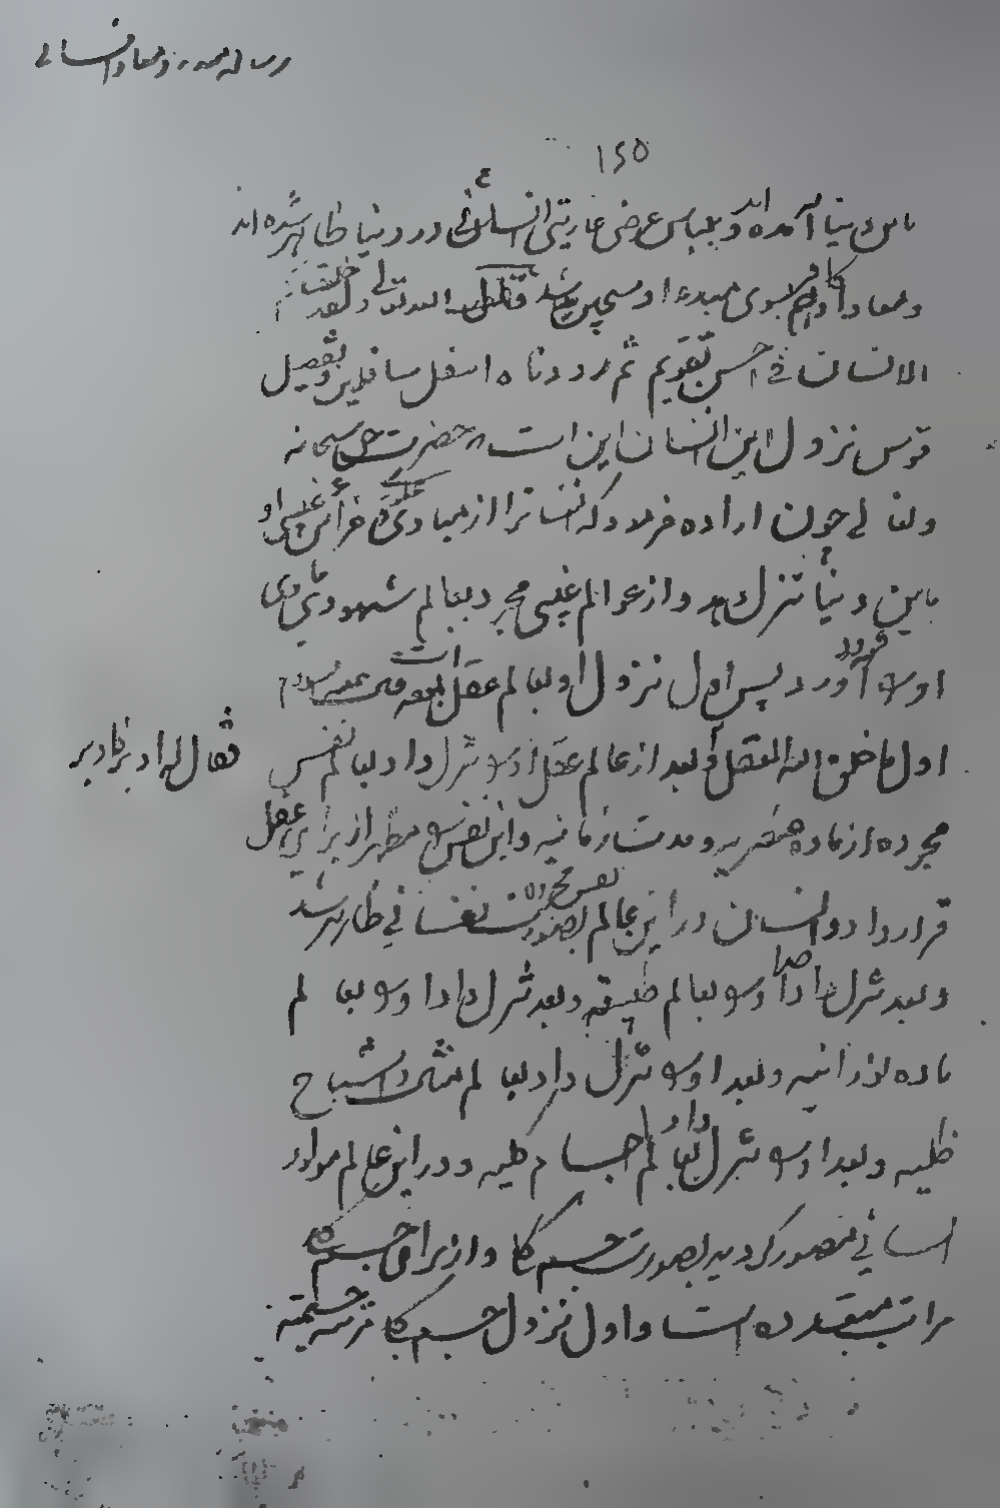 رساله مبدء و معاد انسانی
۱۲۵
باین دنیا آمده‌اند و بلباس عرضی عاریتی انسانی در دنیا ظاهر شده‌اند
و معاد بسوی مبدء او قال الله تعالی و لقد خلقنا
الانسان فی احسن تقویم ثم رددناه اسفل سافلین و تفصیل
قوس نزول این انسان این است حضرت حق سبحانه
و تعالی چون اراده فرمود که از مبادی خزائن غیبی او
باین دنیا تنزل دهد و از عوالم غیبی مجرد بعالم شهود مادی
او را فرود آورد پس اول نزول او بعالم عقل است
اول ما خلق الله العقل و بعد از عالم عقل او را تنزل داد بعالم نفس
فقال له ادبر فادبر
مجرده از ماده عنصریه و مدت زمانیه و این نفس را مظهر از برای عقل
قرار داد و انسان در این عالم نفس بصورت نفسانی ظاهر شد
و بعد تنزل داد او را بعالم طبیعة و بعد تنزل داد او را بعالم
ماده نورانیه و بعد او را تنزل داد بعالم مثال و اشباح
ظلیه و بعد او را تنزل داد بعالم اجسام کلیه و در این عالم مواد
انسانی متصور گردید بصورت جسم کل و از برای جسم کل
مراتب متعدده است و اول نزول جسم کل